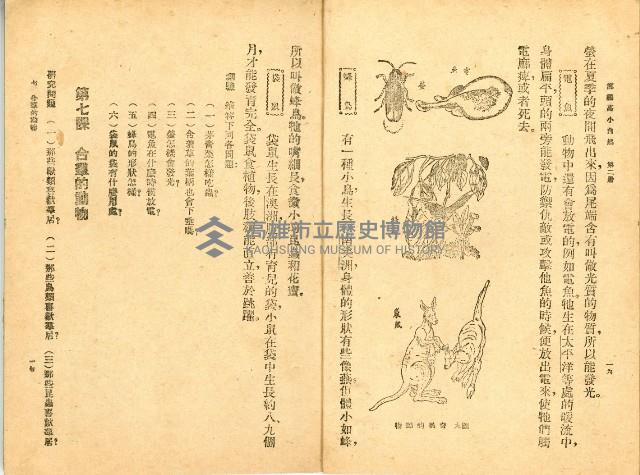 高小自然 第二冊
一六
螢在夏季的夜間飛出來，因爲尾端含有叫做光質的物質，所以能發光。
電魚 動物中還有會放電的，例如電魚。牠生在太平洋等處的暖流中，
身體扁平，頭的兩旁能發電，防禦仇敵或攻擊他魚的時候，便放出電來，使牠們觸
電麻痺，或者死去。
螢
電魚
袋鼠
蜂鳥 有一種小鳥，生長在南美洲，身體的形狀有些像燕，但體小如蜂，
所以叫做蜂鳥。牠的嘴細長，食微小的昆蟲和花蜜。
袋鼠 袋鼠生長在澳洲，腹部有育兒的袋，小鼠在袋中生長約八、九個
月，才能發育完全。袋鼠食植物，後肢強，能直立，善於跳躍。
高雄市立歷史博物館
KAOHSIUNG MUSEUM OF HISTORY
習題 維答下列各問題：
（一）茅膏菜怎樣吃蟲？
（二）含羞草的葉柄也會下垂嗎？
（三）螢怎樣會發光？
（四）電魚在什麼時候放電？
（五）蜂鳥的形狀怎樣？
（六）袋鼠的袋有什麼用處？
第七課 合羣的動物
研究問題 （一）那些獸類喜歡羣居？（二）那些鳥類喜歡羣居？（三）那些昆蟲喜歡羣居？
七 合羣的動物
一七